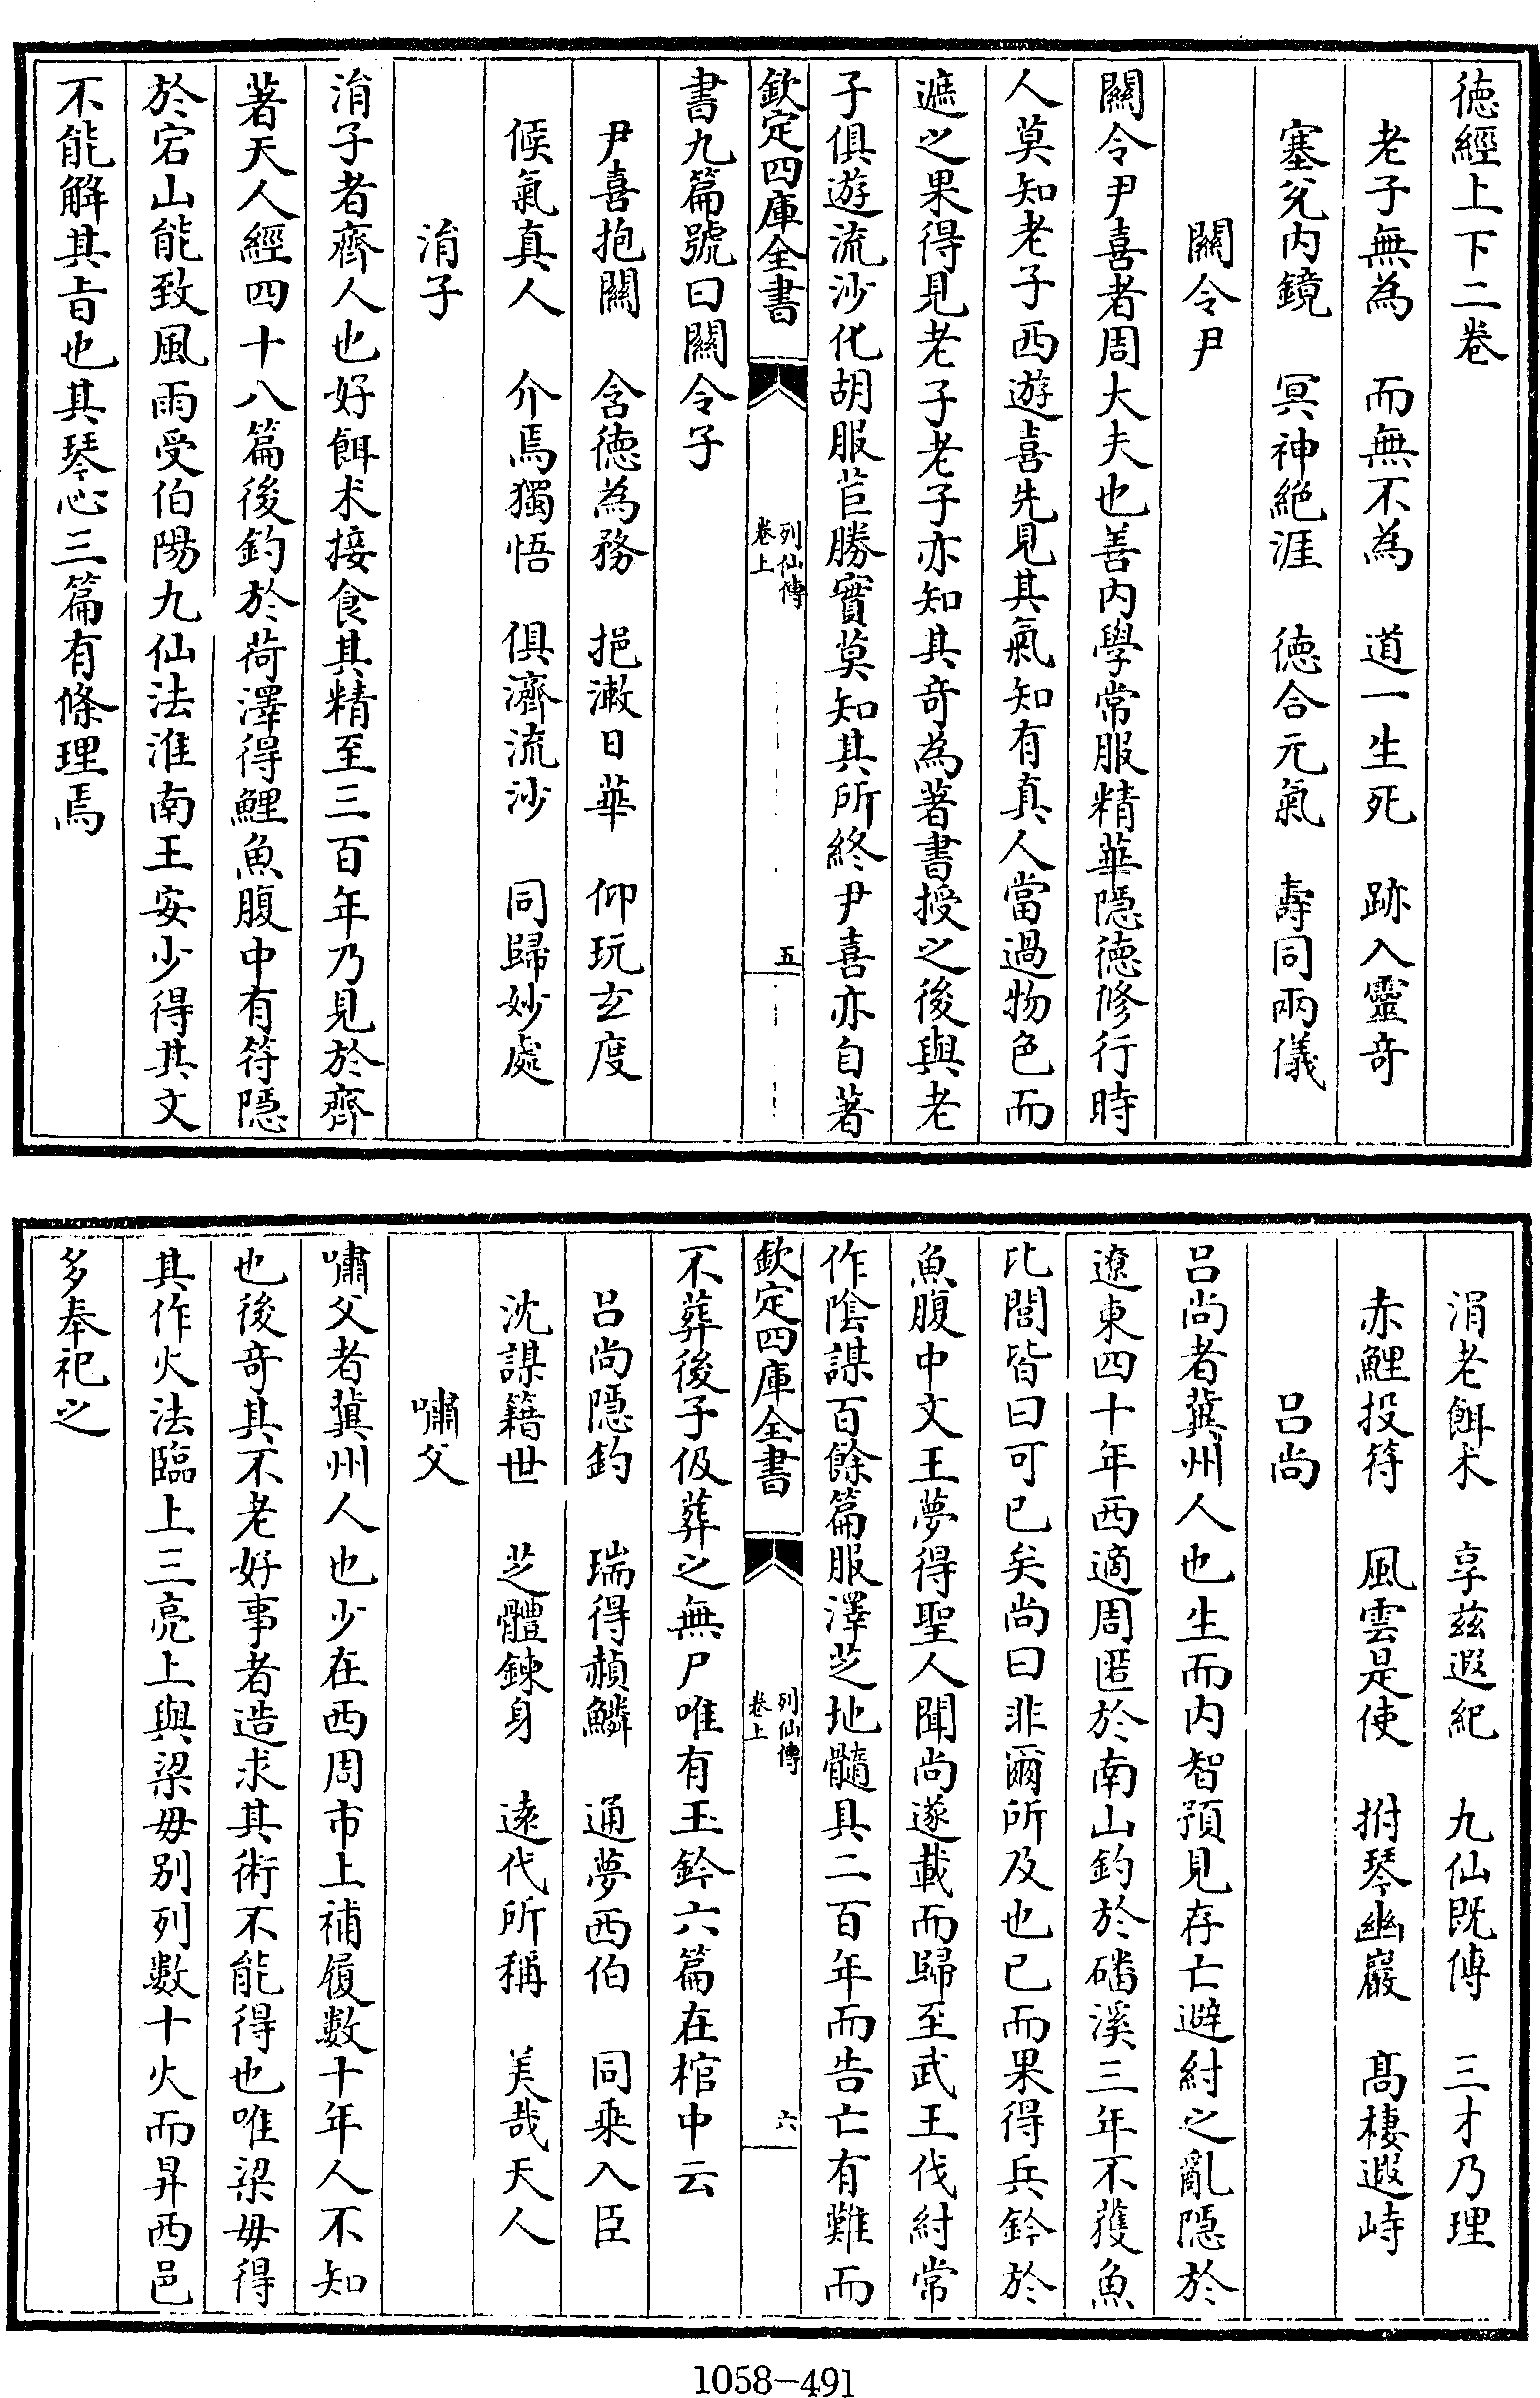 德經上下二卷
老子無為　而無不為　道一生死　跡入靈奇
塞兊内鏡　冥神絶涯　德合元氣　壽同兩儀
關令尹
關令尹喜者周大夫也善内學常服精華隠德修行時
人莫知老子西遊喜先見其氣知有真人當過物色而
遮之果得見老子老子亦知其奇為著書授之後與老
子俱遊流沙化胡服苣勝實莫知其所終尹喜亦自著
欽定四庫全書
列仙傳
卷上
五
書九篇號曰關令子
尹喜抱關　含德為務　挹漱日華　仰玩玄度
候氣真人　介焉獨悟　俱濟流沙　同歸妙處
涓子
涓子者齊人也好餌术接食其精至三百年乃見於齊
著天人經四十八篇後釣於荷澤得鯉魚腹中有符隠
於宕山能致風雨受伯陽九仙法淮南王安少得其文
不能解其㫖也其琴心三篇有條理焉
涓老餌术　享兹遐紀　九仙既傳　三才乃理
赤鯉投符　風雲是使　拊琴幽巖　髙棲遐峙
吕尚
吕尚者冀州人也生而内智預見存亡避紂之亂隠於
遼東四十年西適周匿於南山釣於磻溪三年不獲魚
比閭皆曰可已矣尚曰非爾所及也已而果得兵鈐於
魚腹中文王夢得聖人聞尚遂載而歸至武王伐紂常
作隂謀百餘篇服澤芝地髓具二百年而告亡有難而
欽定四庫全書
列仙傳
卷上
六
不葬後子伋葬之無尸唯有玉鈐六篇在棺中云
吕尚隠釣　瑞得赬鱗　通夢西伯　同乗入臣
沈謀籍世　芝體鍊身　逺代所稱　美哉天人
嘯父
嘯父者冀州人也少在西周市上補履數十年人不知
也後奇其不老好事者造求其術不能得也唯梁毋得
其作火法臨上三亮上與梁毋别列數十火而昇西邑
多奉祀之
1058-491